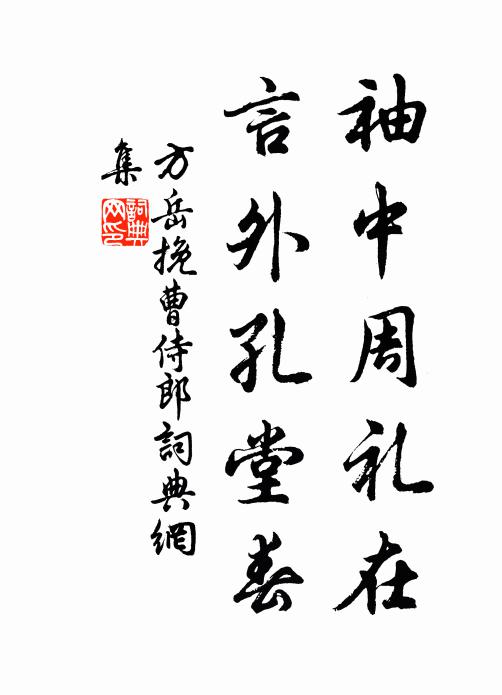 袖中周礼在
言外孔堂春
方岳挽曹侍郎詞典網
集
詞典網印